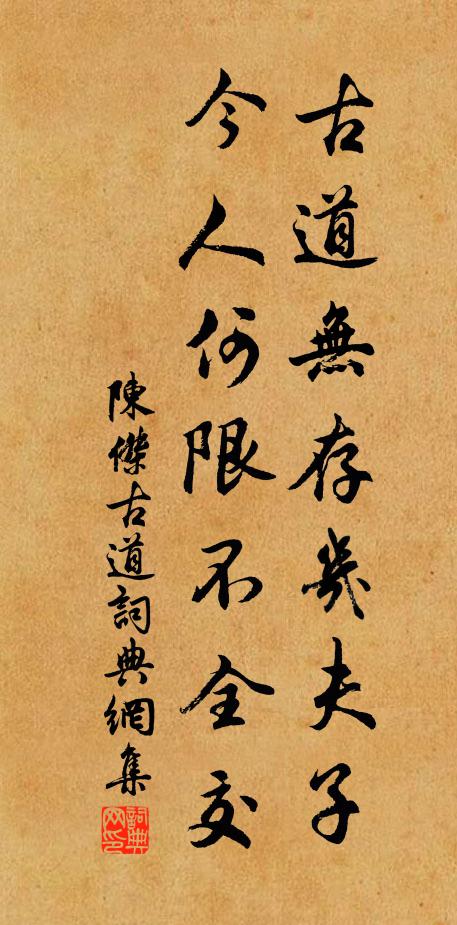 古道無存幾夫子
今人何限不全交
陳傑古道詞典網集
詞典网印